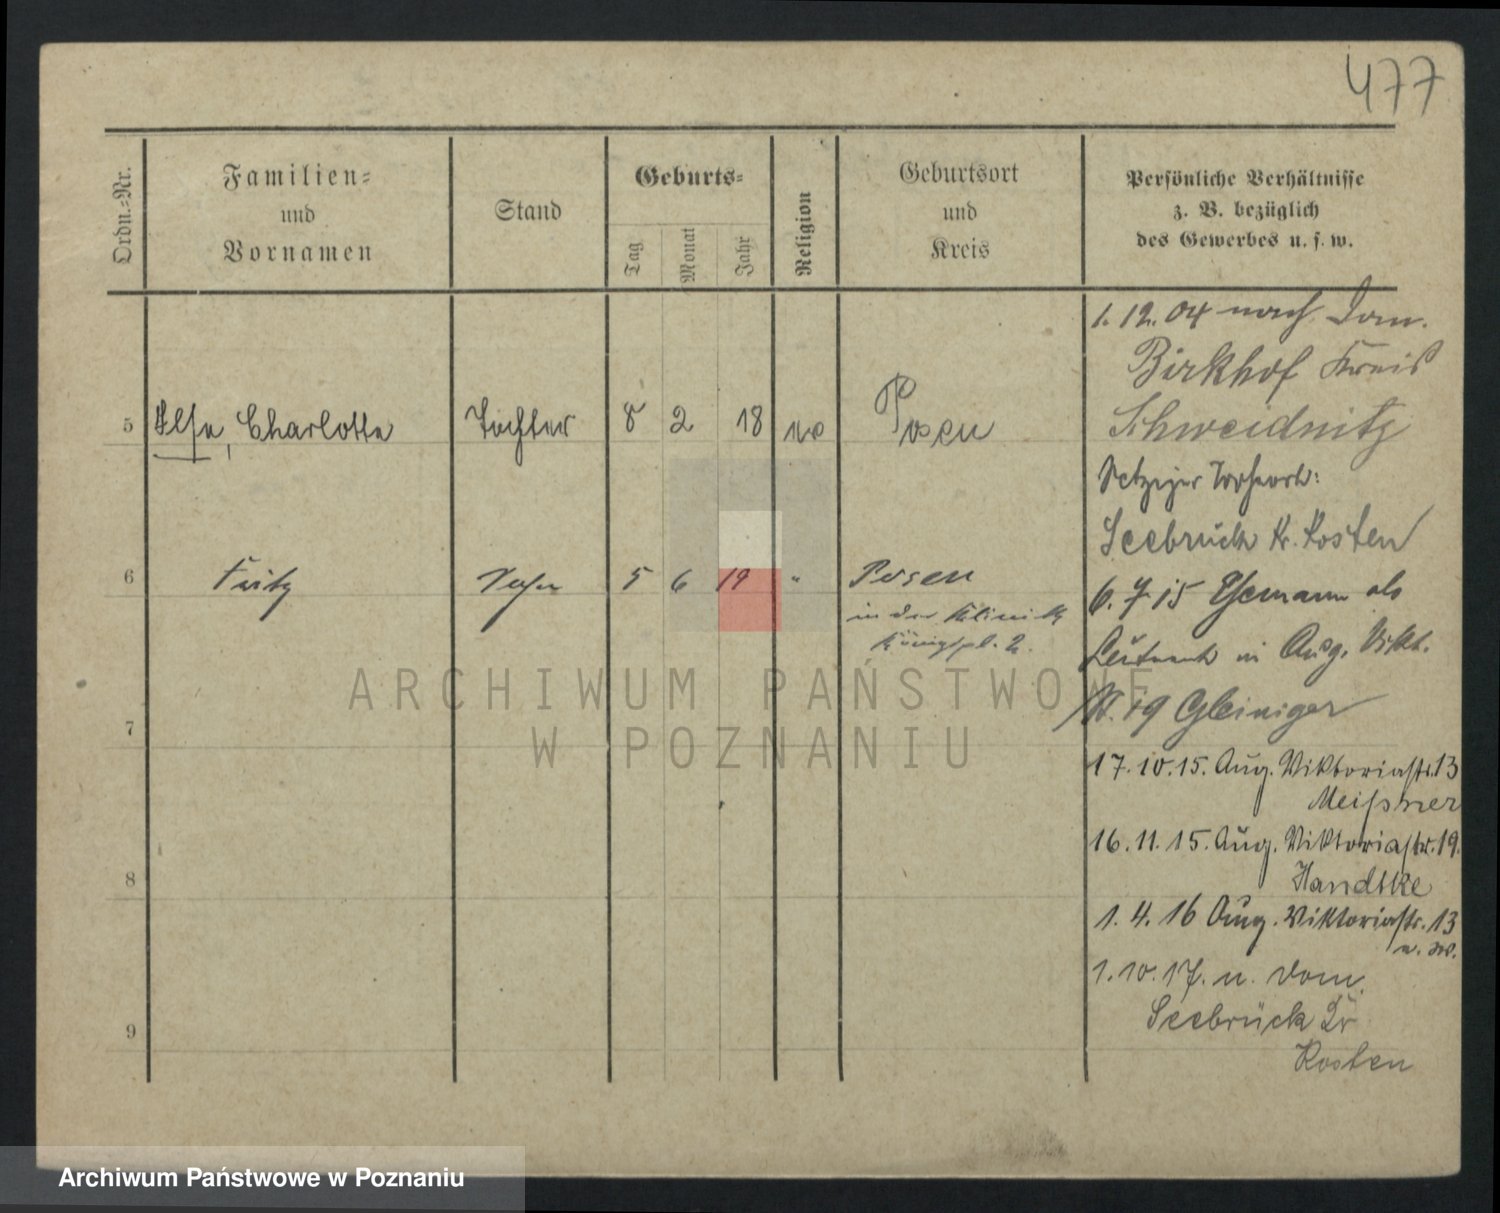 477
Ordn.-Nr.
Familien-
und
Vornamen
Stand
Geburts-
Tag
Monat
Jahr
Religion
Geburtsort
und
Kreis
Persönliche Verhältnisse
z. B. bezüglich
des Gewerbes u. s. w.
1. 12. 04 nach Dom.
Birkhof Kreis
Schweidnitz
5 Ilse, Charlotte Tochter 8 2 18 Posen
Jetziger Wohnort:
Seebrück Kr. Kosten
6 Fritz Sohn 5 6 19 " Posen
in der Klinik
Königspl. 2.
6. 7 15 Ehemann als
Leutnant in Aug. Vikt.
19 Gleiniger
7
17. 10. 15. Aug. Viktoriastr. 13
Meißner
16. 11. 15. Aug. Viktoriastr. 19.
Handtke
8
1. 4. 16 Aug. Viktoriastr. 13
1. 10. 17. n. Dom.
Seebrück Kr
9
Kosten
ARCHIWUM PAŃSTWOWE
W POZNANIU
Archiwum Państwowe w Poznaniu